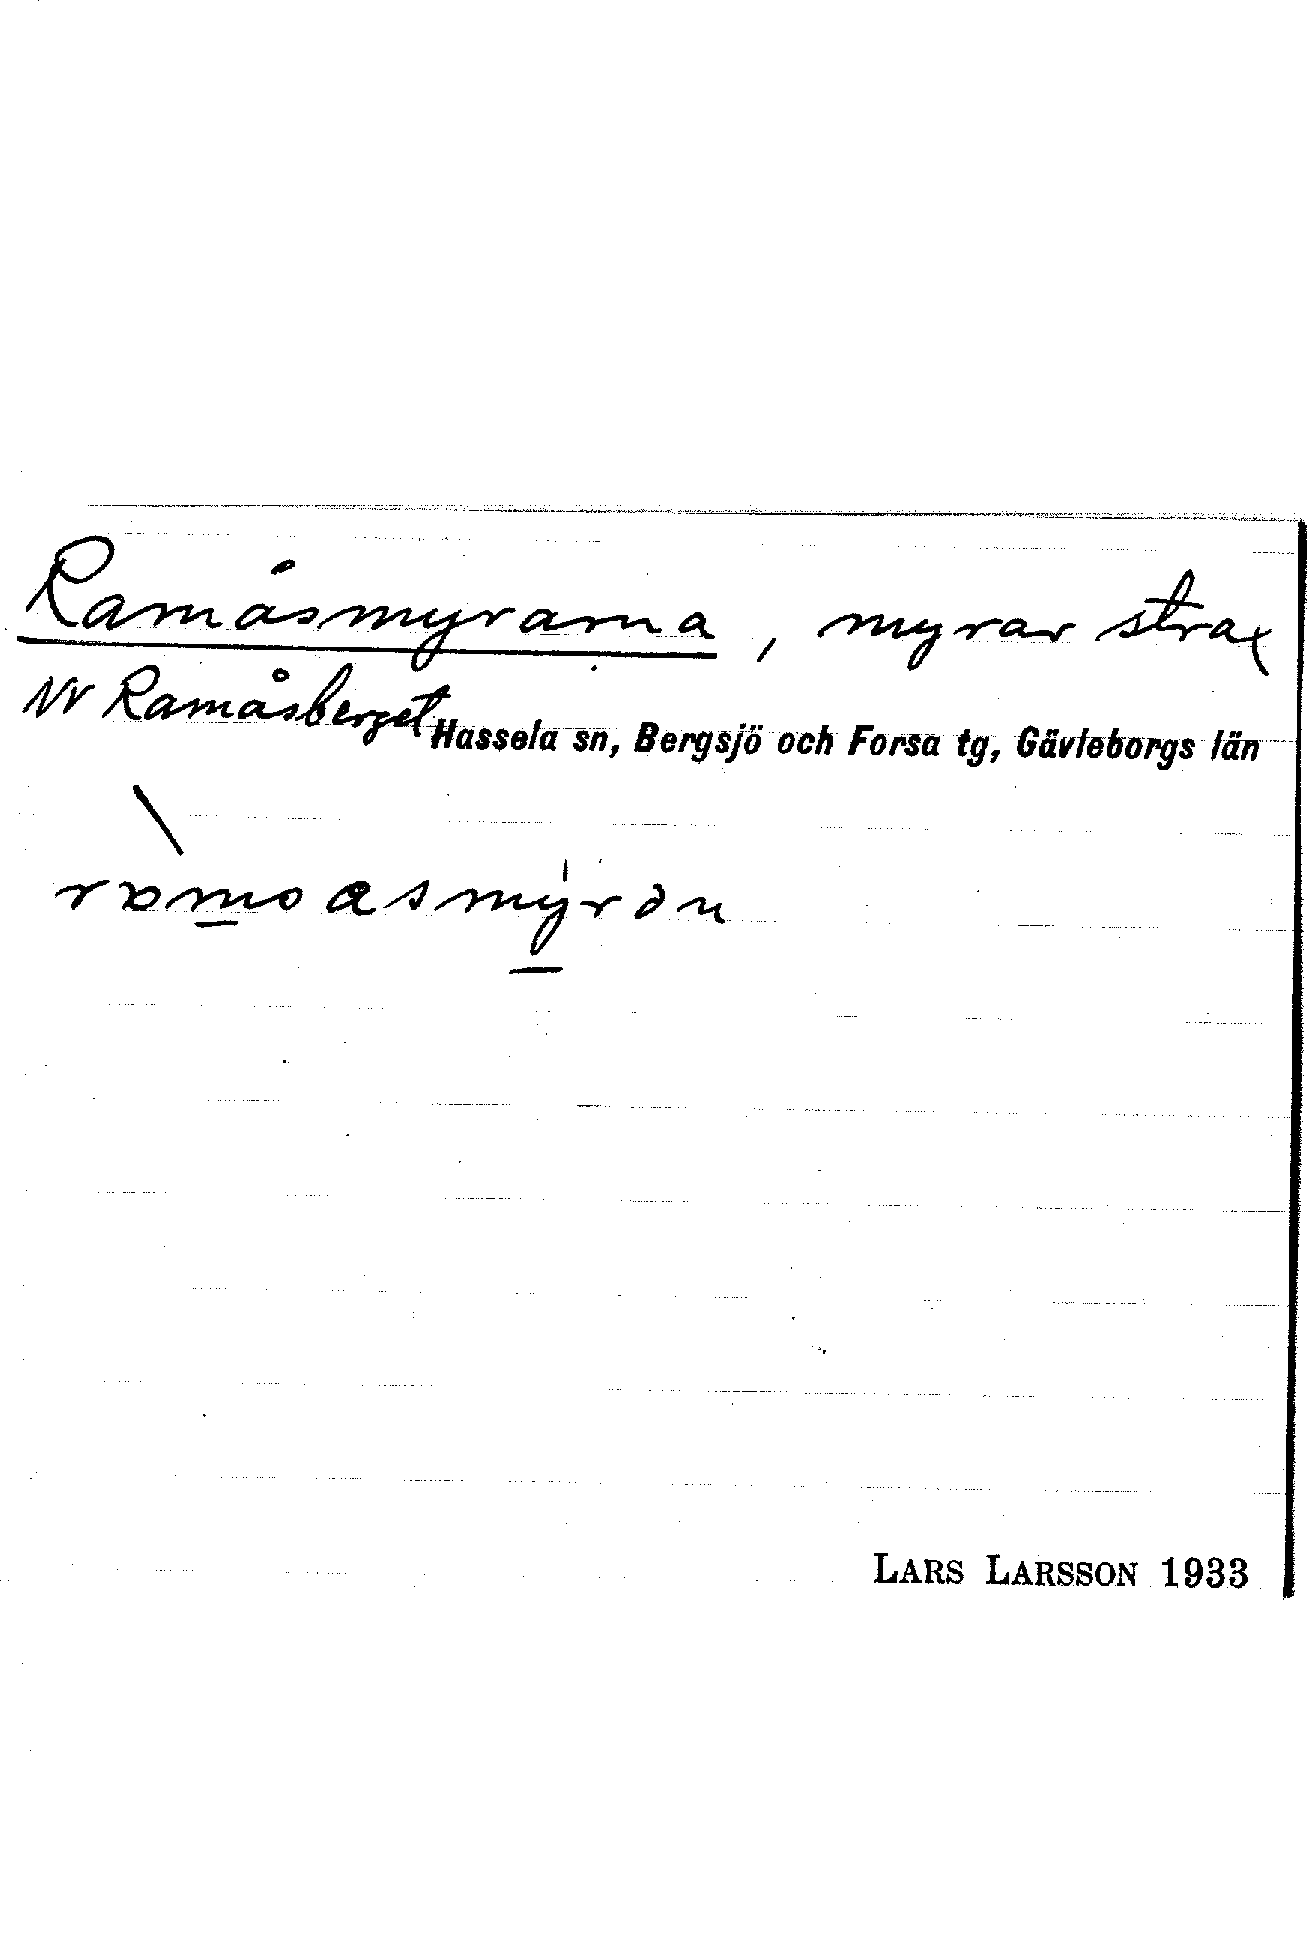 Ramåsmyrarna, myrar strax
NV Ramåsberget Hassela sn, Bergsjö och Forsa tg, Gävleborgs län
LARS LARSSON 1933